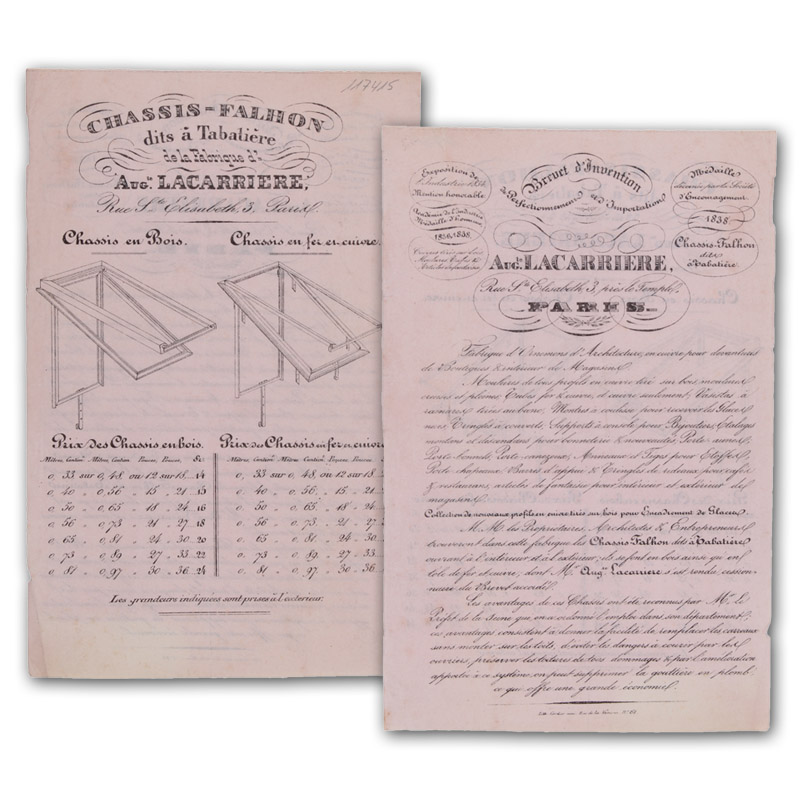 117415
CHASSIS-FALHON
dits à Tabatière
de la Fabrique d'
Aug.te LACARRIERE,
Rue S.te Elisabeth, 3, Paris.
Chassis en Bois.
Prix des Chassis en bois.
Mètres, Centim. Pouces, Pouces, fc.
0, 33 sur 0, 48 ou 12 sur 18 14
0, 40 „ 0, 56 „ 15 „ 21 „ 15
0, 50 „ 0, 65 „ 18 „ 24 „ 16
0, 56 „ 0, 73 „ 21 „ 27 „ 18
0, 65 „ 0, 81 „ 24 „ 30 „ 20
0, 73 „ 0, 89 „ 27 „ 33 „ 22
0, 81 „ 0, 97 „ 30 „ 36 „ 24
Chassis en fer et cuivre.
Prix des Chassis en fer et cuivre
Mètres, Centim. Pouces, Pouces,
0, 33 sur 0, 48, ou 12 sur 18
0, 40 „ 0, 56 „ 15 „ 21
0, 50 „ 0, 65 „ 18 „ 24
0, 56 „ 0, 73 „ 21 „ 27
0, 65 „ 0, 81 „ 24 „ 30
0, 73 „ 0, 89 „ 27 „ 33
0, 81 „ 0, 97 „ 30 „ 36
Les grandeurs indiquées sont prises à l'exterieur.
Exposition de
l'Industrie
Mention honorable
Académie de l'Industrie
1836, 1838
Brevet d'Invention
de Perfectionnement et d'Importation
Médaille
décernée par la Société
d'Encouragement
1838
Chassis-Falhon
dits
à Tabatière
Aug.te LACARRIERE,
Rue S.te Elisabeth, 3, près le Temple,
PARIS
Fabrique d'Ornemens d'Architecture, en cuivre pour devantures
de Boutiques & intérieur de Magasins
Moulures de tous profils en cuivre tiré sur bois, moulures
creuses et pleines Tubes fer & cuivre, d'cuivre seulement, Vasistas à
rainures tirées au banc, Montres à coulisse pour recevoir les Glaces
Tringles à Supports à console pour Bijoutiers, Etalages
montans et descendans pour bonneterie & nouveautés, Porte
Porte Porte Anneaux et Tiges pour Etoffes,
Porte chapeaux Barres d'appui & Tringles de rideaux pour cafés
& restaurans, articles de fantaisie pour intérieur et extérieur de
magasins
Collection de nouveaux profils en cuivre tirés sur bois pour Encadrement de Glaces.
M.M. les Propriétaires, Architectes & Entrepreneurs
trouveront dans cette fabrique les Chassis Falhon dits à Tabatière
ouvrant à l'intérieur et à l'extérieur, ils se font en bois ainsi qu'en
tôle de fer et cuivre, dont M.r Aug.te Lacarriere s'est rendu cession-
naire du Brevet accordé.
Les avantages de ces Chassis ont été reconnus par M.r le
Préfet de la Seine qui en a ordonné l'emploi dans son département;
ces avantages consistent à donner la facilité de remplacer les carreaux
sans monter sur les toits, d'éviter les dangers à courir par les
ouvriers, préserver les toitures de tous dommages & par l'amélioration
apportée à ce système, on peut supprimer la gouttière en plomb
ce qui offre une grande économie.